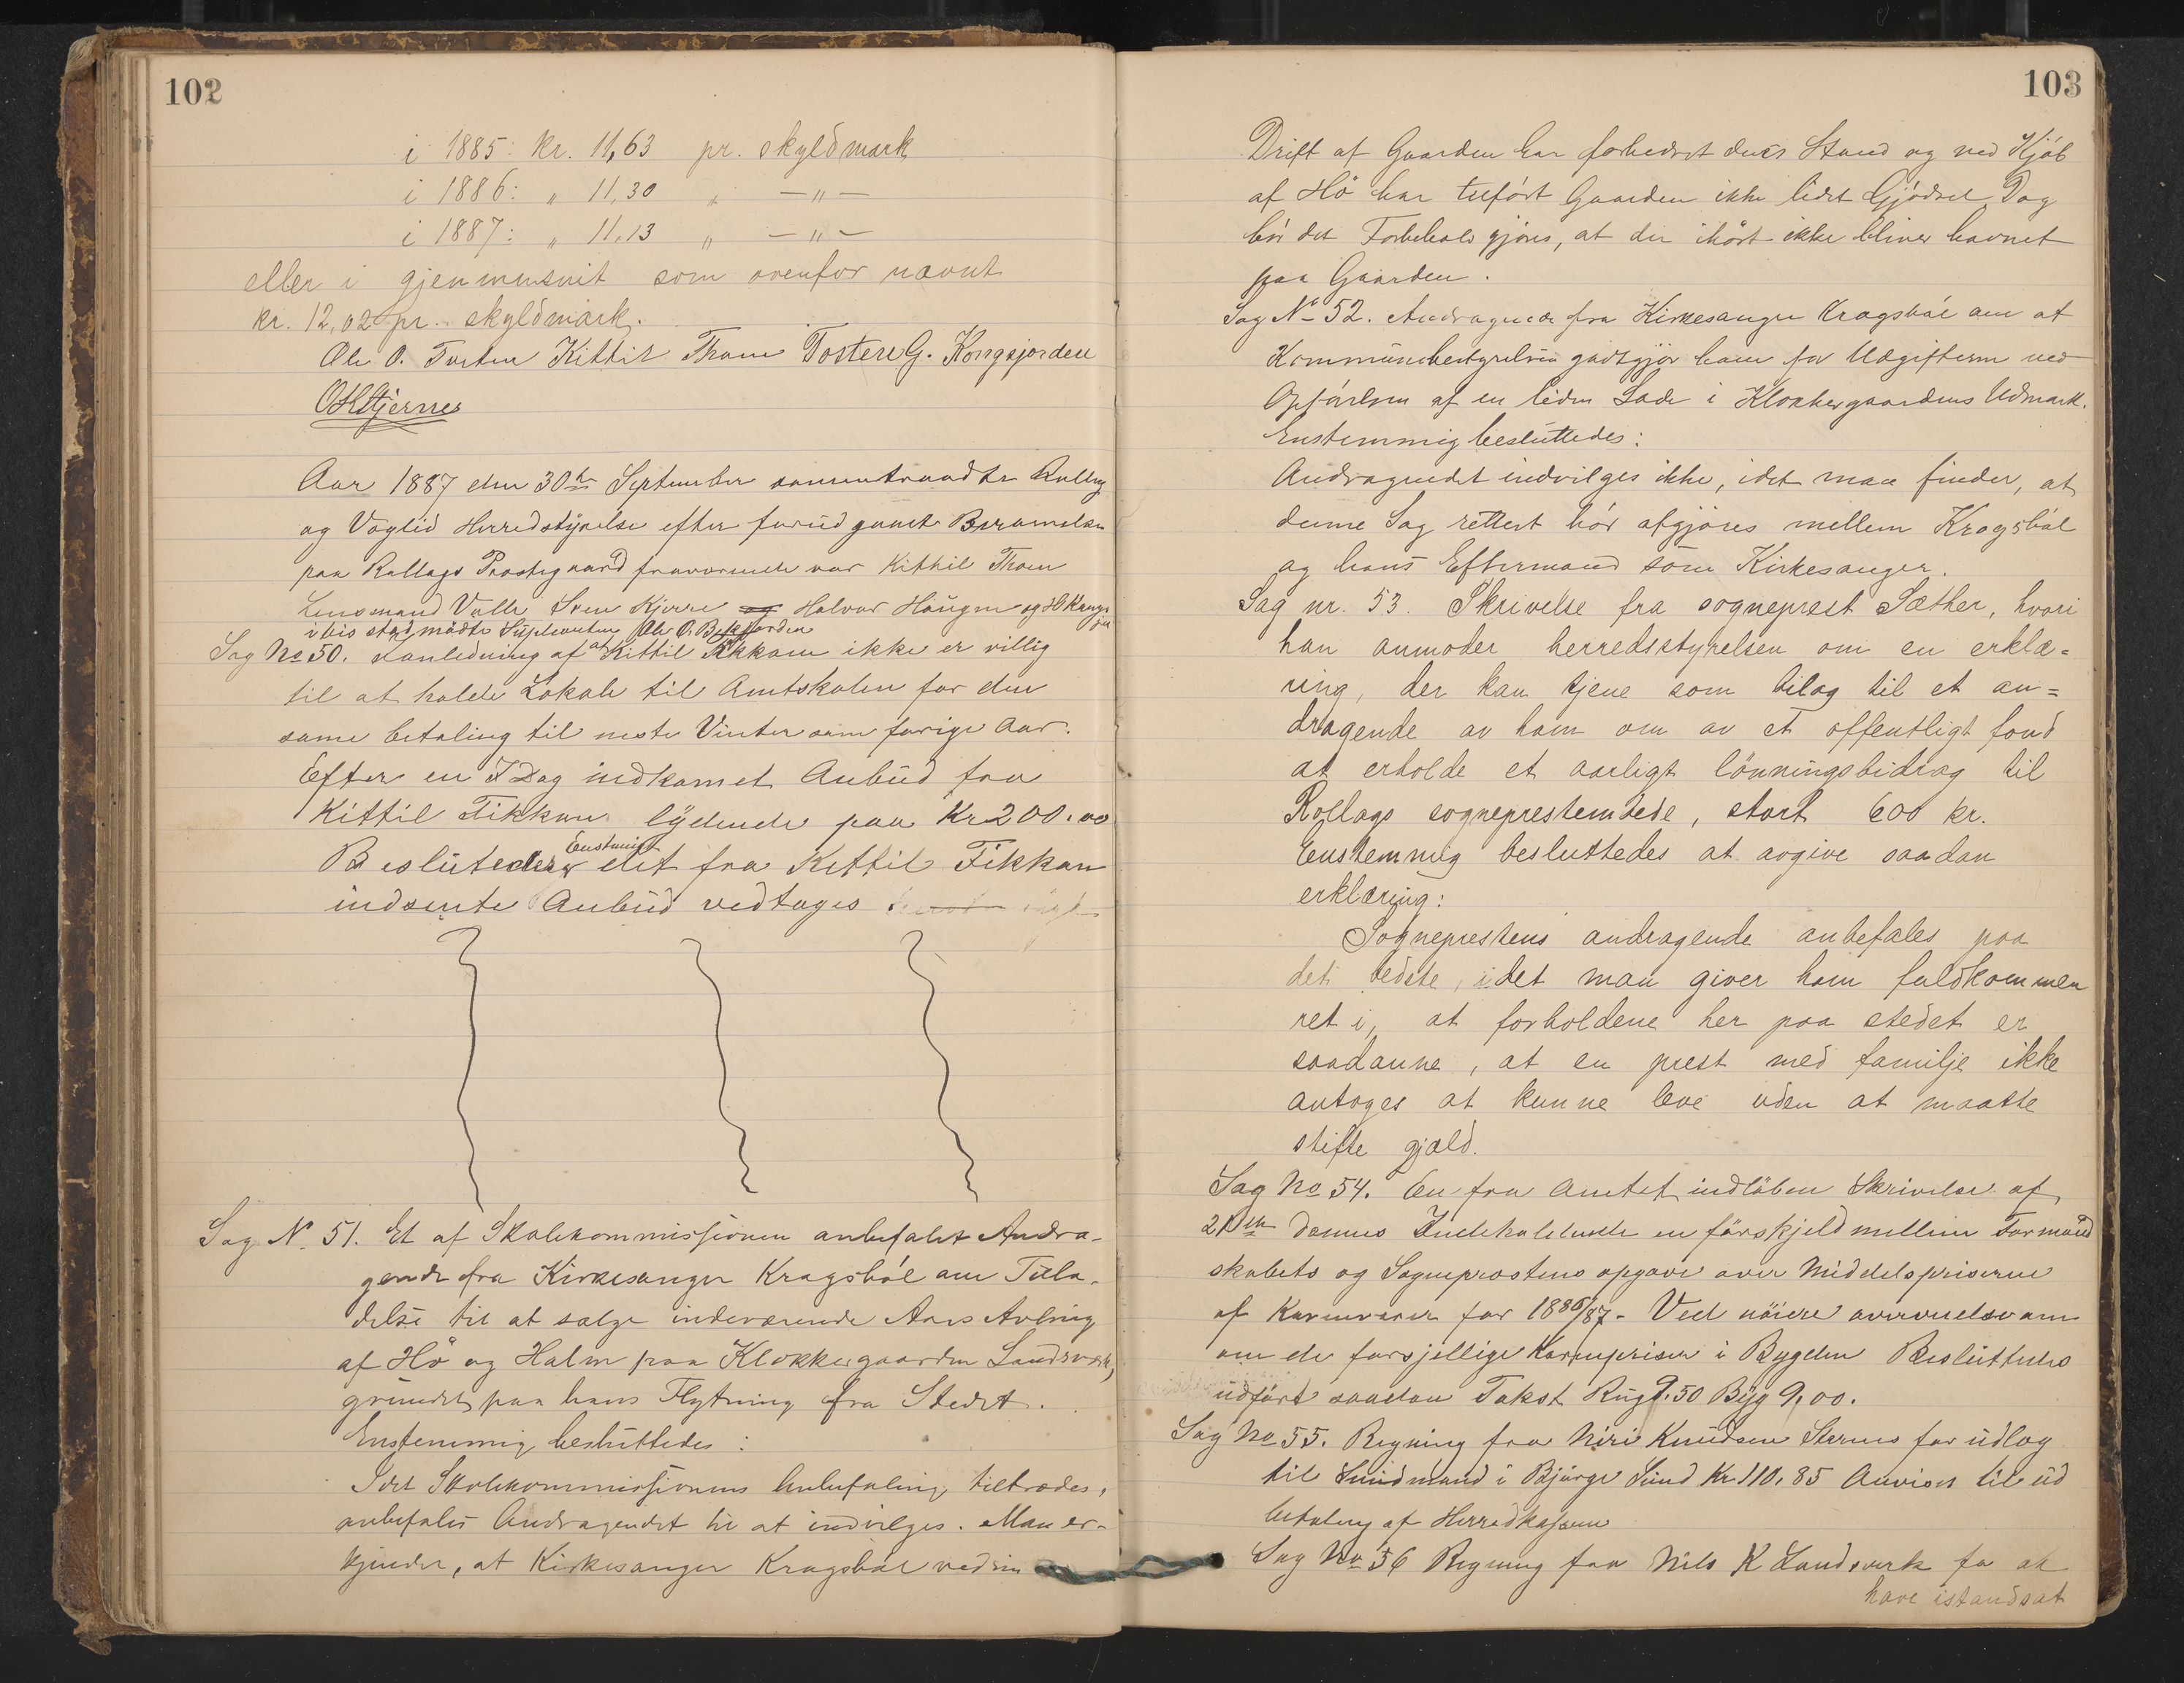 102
i 1885: Kr. 11,63 pr. skyldmark
i 1886: " 11,30 " — " —
i 1887: " 11,13 " — " —
eller i gjennemsnit som ovenfor nævnt
kr. 12,02 pr. skyldmark.
Ole O. Tveten Kittil Thom Tosten G. Kongsjorden
Aar 1887 den 30te September sammentraadte Rollag
og Væglid Herredstyrelse efter forudgaaet Berammelse
paa Rollags Prestegaard fraværende var Kittil Thom
Lensmand Valle Sven Kjerre og Halvor Haugen og
i his sted mødte Suplianten Ole O.
Sag No 50. Ianledning af at Kittil Fikkan ikke er villig
til at holde Lokale til Amtskolen for den
same betaling til neste Vinter som forige Aar.
Efter en I Dag indkomet Anbud fra
Kittil Fikkan lydende paa Kr 200,00
Besluttedes Enstemigt det fra Kittil Fikkan
indsente Anbud vedtages.
Sag N. 51. Et af Skolekommissionen anbefalet Andra-
gende fra Kirkesanger Kragsbøl om Tilla-
delse til at sælge indeværende Aars Avling
af Hø og Halm paa Klokkergaarden Landsværk,
grundet paa hans Flytning fra Stedet.
Enstemmig besluttedes:
Idet Skolekommissionens Anbefaling tiltrædes,
anbefales Andragendet til at indvilges. Man er-
kjender, at Kirkesanger Kragsbøl ved sin
103
Drift af Gaarden har forbedret dens Stand og ved Kjøb
af Hø har tilført Gaarden ikke lidet Gjødsel. Dog
bør det Forbehold gjøres, at der ihøst ikke bliver havnet
paa Gaarden.
Sag No 52. Andragende fra Kirkesanger Kragsbøl om at
Kommunebestyrelsen godtgjør ham for Udgifterne ved
Opførelsen af en liden Lade i Klokkergaardens Udmark.
Enstemmig besluttedes:
Andragendet indvilges ikke, idet man finder, at
denne Sag rettest bør afgjøres mellem Kragsbøl
og hans Eftermand som Kirkesanger.
Sag nr. 53. Skrivelse fra sogneprest Sæther, hvori
han anmoder herredsstyrelsen om en erklæ=
ring, der kan tjene som bilag til et an=
dragende av ham om av et offentligt fond
at erholde et aarligt lönningsbidrag til
Rollags sogneprestembede, stort 600 kr.
Enstemmig besluttedes at avgive saadan
erklæring:
Sogneprestens andragende anbefales paa
det bedste, idet man giver ham fuldkommen
ret i, at forholdene her paa stedet er
saadanne, at en prest med familje ikke
antages at kunne leve uden at maatte
stifte gjæld.
Sag No 54. En fra Amtet indløben Skrivelse af
21de dennes Indeholdende enførskjeld mellem Formand
skabets og Sogneprestens opgave over Middelspriserne
af Kornvarer for 1886/87. Ved nöiere
om de forsjellige Kornpriser i Bygden Besluttedes
udfört saadan Takst Rug 9,50 Byg 9,00.
Sag No 55. Regning fra Niri Knudsen for udlag
til Sundmand i Bjørge Sund Kr 110,85 Anvises til ud
betaling af Herredkassen
Sag No 56 Regning fra Nils K Landsverk for at
have istandsat